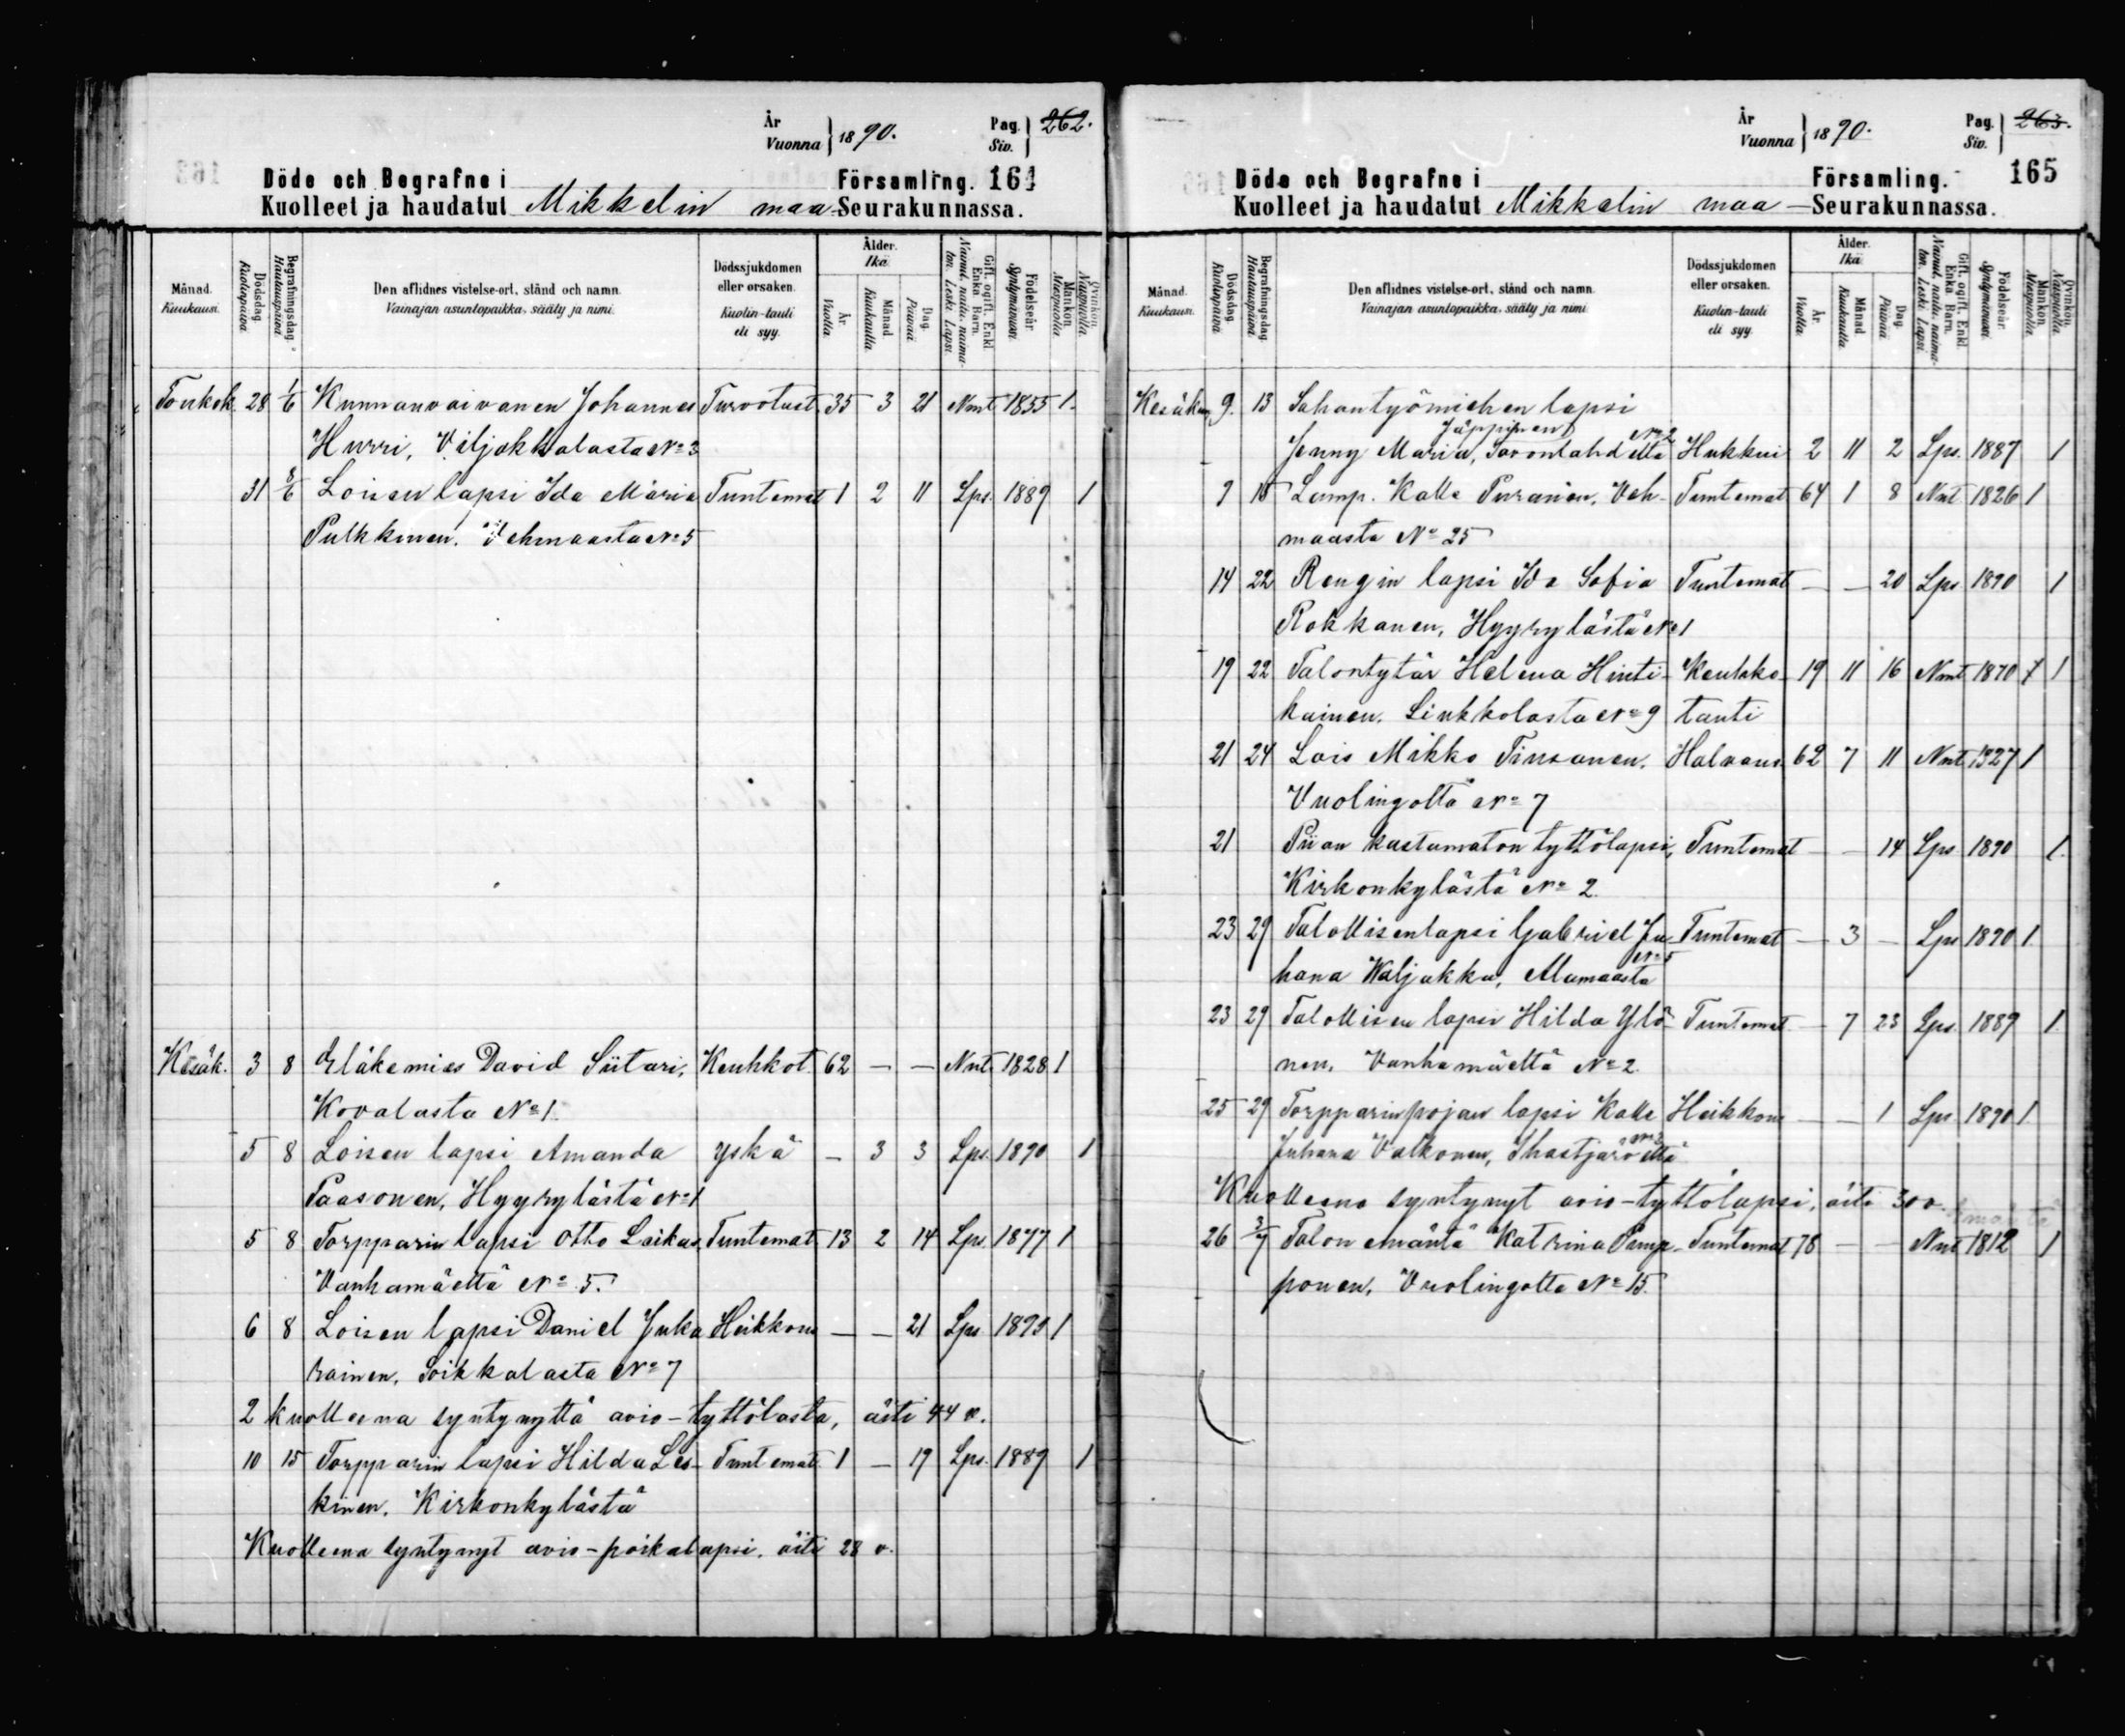 År
Vuonna } 1890.
Pag.
Siv. } 262.
Döde och Begrafne i Församling. 164
Kuolleet ja haudatut Mikkelin maa-Seurakunnassa.
Månad. Kuukausi.
Dödsdag. Kuolinpäivä.
Begrafningsdag. Hautauspäivä.
Den aflidnes vistelse-ort, stånd och namn.
Vainajan asuntopaikka, sääty ja nimi.
Dödssjukdomen eller orsaken.
Kuolin-tauti eli syy.
Ålder. Ikä.
År. Vuotta.
Månad. Kuukautta.
Dag. Päivää.
Gift, ogift, Enkl. Enka Barn.
Nainut, naitu, naimaton, Leski Lapsi.
Födelseår. Syntymävuosi.
Mankön. Miespuolta.
Qvinkön. Naispuolta.
Toukok. 28 1/6 Kunnanvaivanen Johannes Turvotust. 35 3 21 Nmt 1855 1.
Hurri, Viljakkalasta No 3
31 8/6 Loisen lapsi Ida Maria Tuntemat 1 2 11 Lps. 1889 1
Pulkkinen, Vehmaasta No 5
Kesäk. 3 8 Eläkemies David Siitari, Keuhkot. 62 — — Nnt. 1828 1
Kovalasta No 1.
5 8 Loisen lapsi Amanda yskä — 3 3 Lps. 1890 1
Paasonen, Hyyrylästä No 1
5 8 Torpparin lapsi Otto Laikas, Tuntemat 13 2 14 Lps. 1877 1
Vanhamäeltä No 5.
6 8 Loisen lapsi Daniel Juka Heikkous — — 21 Lps. 1890 1
rainen, Soikkalasta No 7
2 kuolleena syntynyttä avio-tyttölasta, äiti 44 v.
10 15 Torpparin lapsi Hilda Les- Tuntemat. 1 — 19 Lps. 1889 1
kinen, Kirkonkylästä
Kuolleena syntynyt avio-poikalapsi, äiti 28 v.
År
Vuonna } 1890.
Pag.
Siv. } 263.
Döde och Begrafne i Församling. 165
Kuolleet ja haudatut Mikkelin maa-Seurakunnassa.
Månad. Kuukausi.
Dödsdag. Kuolinpäivä.
Begrafningsdag. Hautauspäivä.
Den aflidnes vistelse-ort, stånd och namn.
Vainajan asuntopaikka, sääty ja nimi.
Dödssjukdomen eller orsaken.
Kuolin-tauti eli syy.
Ålder. Ikä.
År. Vuotta.
Månad. Kuukautta.
Dag. Päivää.
Gift, ogift, Enkl. Enka Barn.
Nainut, naitu, naimaton, Leski Lapsi.
Födelseår. Syntymävuosi.
Mankön. Miespuolta.
Qvinkön. Naispuolta.
Kesäkuu 9. 13 Sahantyömiehen lapsi
Jäppinen No 2
Jenny Maria, Savonlahdelta Hukkui 2 11 2 Lps. 1887 1
9 15 Lamp. Kalle Puranen, Veh- Tuntemat 64 1 8 Nnt 1826 1
maasta No 25
14 22 Rengin lapsi Ida Sofia Tuntemat — — 20 Lps 1890 1
Rokkanen, Hyyrylästä No 1
19 22 Talontytär Helena Hinti- Keuhko- 19 11 16 Nmt 1870 1
kainen, Liukkolasta No 9 tauti
21 24 Lois Mikko Tiusanen, Halvaus 62 7 11 Nnt 1827 1
Vuolingolta No 7
21 Piian kastamaton tyttölapsi, Tuntemat — — 14 Lps 1890 1.
Kirkonkylästä No 2.
23 29 Talollisenlapsi Gabriel Ju- Tuntemat — 3 — Lps 1890 1.
No 5
hana Waljakka, Alamaasta
23 29 Talollisen lapsi Hilda Ylö- Tuntemat — 7 23 Lps. 1889 1.
nen, Vanhamäeltä No 2.
25 29 Torpparinpojan lapsi Kalle Heikkous — — 1 Lps. 1890 1.
Juhana Valkonen, Ihastjärveltä
Kuolleena syntynyt avio-tyttölapsi, äiti 30 v.
26 3/7 Talon emäntä Katrina Pimp- Tuntemat 78 — — Nnt 1812 1
ponen, Vuolingolta No 15.